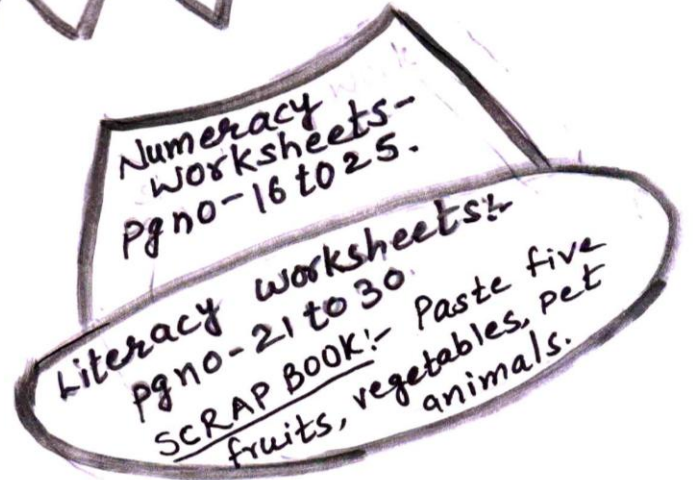 Numeracy
worksheets-
pg no-16 to 25.
Literacy worksheets:-
pg no-21 to 30.
SCRAP BOOK:- Paste five
fruits, vegetables, pet
animals.